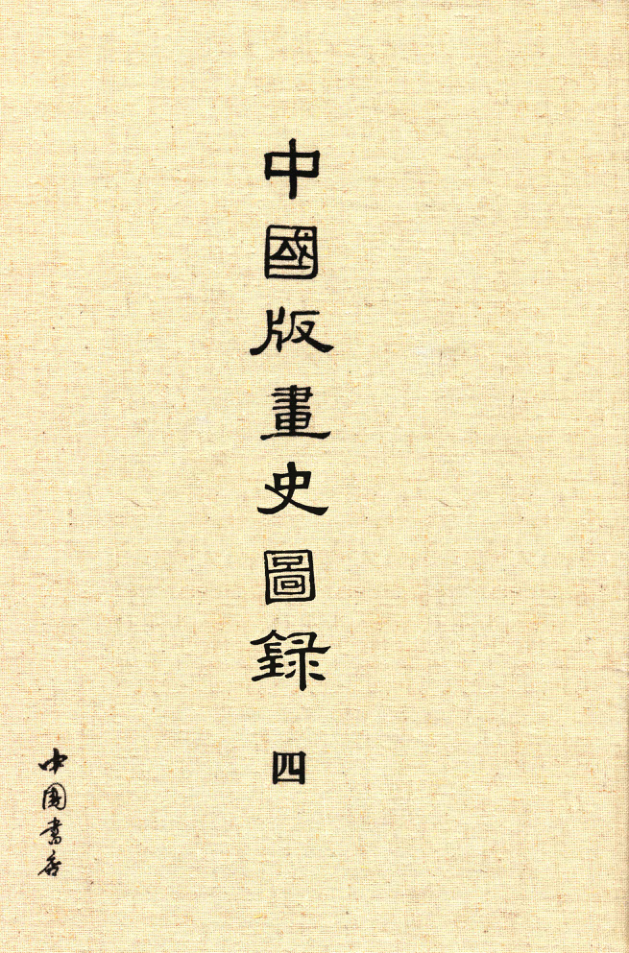 中國版畫史圖録
四
中国書店